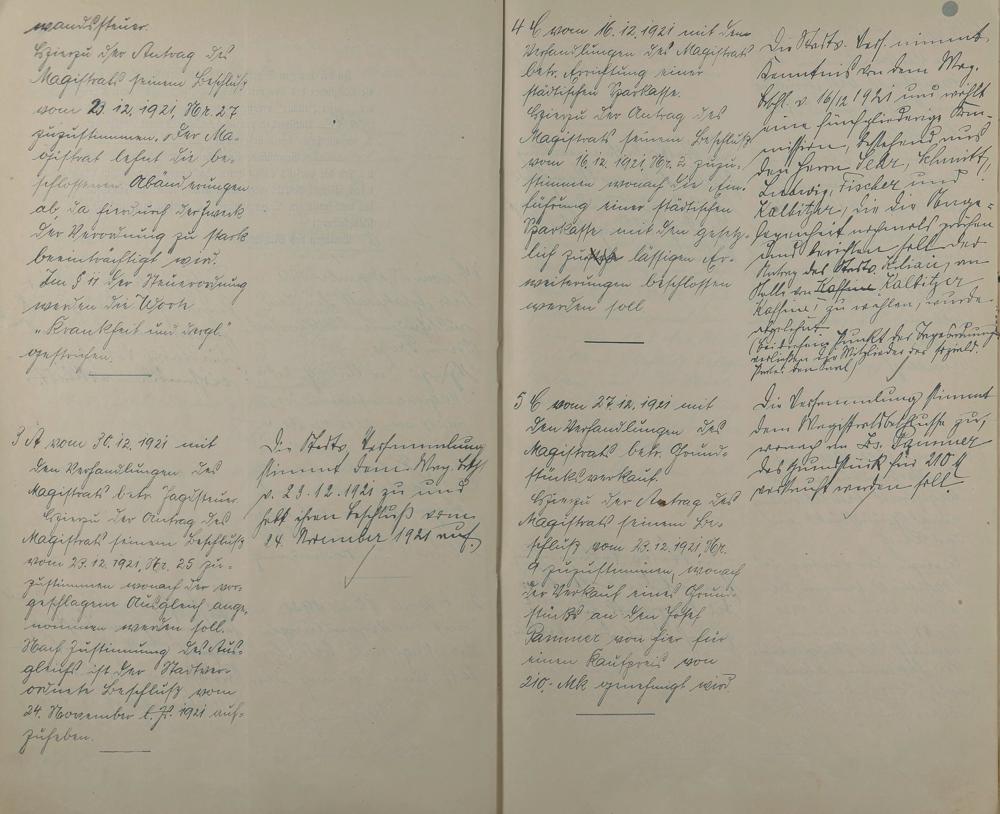 wandssteuer.
Hierzu der Antrag des
Magistrats seinem Beschluß
vom 23.12.1921, Nr. 27
zuzustimmen. Der Ma-
gistrat lehnt die be-
schlossenen Abänderungen
ab, da hierdurch der Zweck
der Verordnung zu stark
beeinträchtigt wird.
Im § 11 der Steuerordnung
werden die Worte
"Krankheit und dergl."
gestrichen.
3 A vom 30.12.1921 mit
den Verhandlungen des
Magistrats betr. Jagdsteuer.
Hierzu der Antrag des
Magistrats seinem Beschluß
vom 23.12.1921, Nr. 25 zu-
zustimmen wonach der vor-
geschlagene Ausgleich ange-
nommen werden soll.
Nach Zustimmung des Aus-
gleichs ist der Stadtver-
ordnete Beschluß vom
24. November l. Js. 1921 auf-
zuheben.
Die Stadtv. Versammlung
stimmt dem Mag. Besch.
v. 23.12.1921 zu und
hebt ihren Beschluß vom
24. November 1921 auf.
4 C vom 16.12.1921 mit den
Verhandlungen des Magistrats
betr. Errichtung einer
städtischen Sparkasse.
Hierzu der Antrag des
Magistrats seinem Beschluß
vom 16.12.1921, Nr. 2 zuzu-
stimmen wonach die Ein-
führung einer städtischen
Sparkasse mit den gesetz-
lich zu lässigen Er-
weiterungen beschlossen
werden soll
Die Stadtv. Vers. nimmt
Kenntnis von dem Mag.
Beschl. v. 16/12 1921 und wählt
eine fünfgliederige Kom-
mission, bestehend aus
den Herrn Sehr, Schmitt,
Ludwig, Fischer und
Kalbitzer, die die Ange-
legenheit nochmals prüfen
und berichten soll. Der
Antrag des Stadtv. Kilian, an
Stelle von Kalbitzer
zu wählen, wurde
abgelehnt.
(Bei diesem Punkt der Tagesordnung
verließen die Mitglieder der soziald.
Partei den Saal)
5 C vom 27.12.1921 mit
den Verhandlungen des
Magistrats betr. Grund-
stücksverkauf.
Hierzu der Antrag des
Magistrats seinem Be-
schluß vom 23.12.1921, Nr.
9 zuzustimmen, wonach
der Verkauf eines Grund-
stücks an den Josef
Pammer von hier für
einen Kaufpreis von
210,- Mk genehmigt wird.
Die Versammlung stimmt
dem Magistratsbeschlusse zu,
wonach an Js. Pammer
das Grundstück für 210 M
verkauft werden soll.